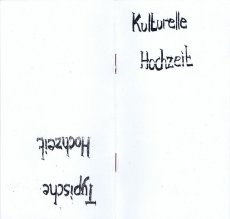 Kulturelle
Hochzeit
Typische
Hochzeit